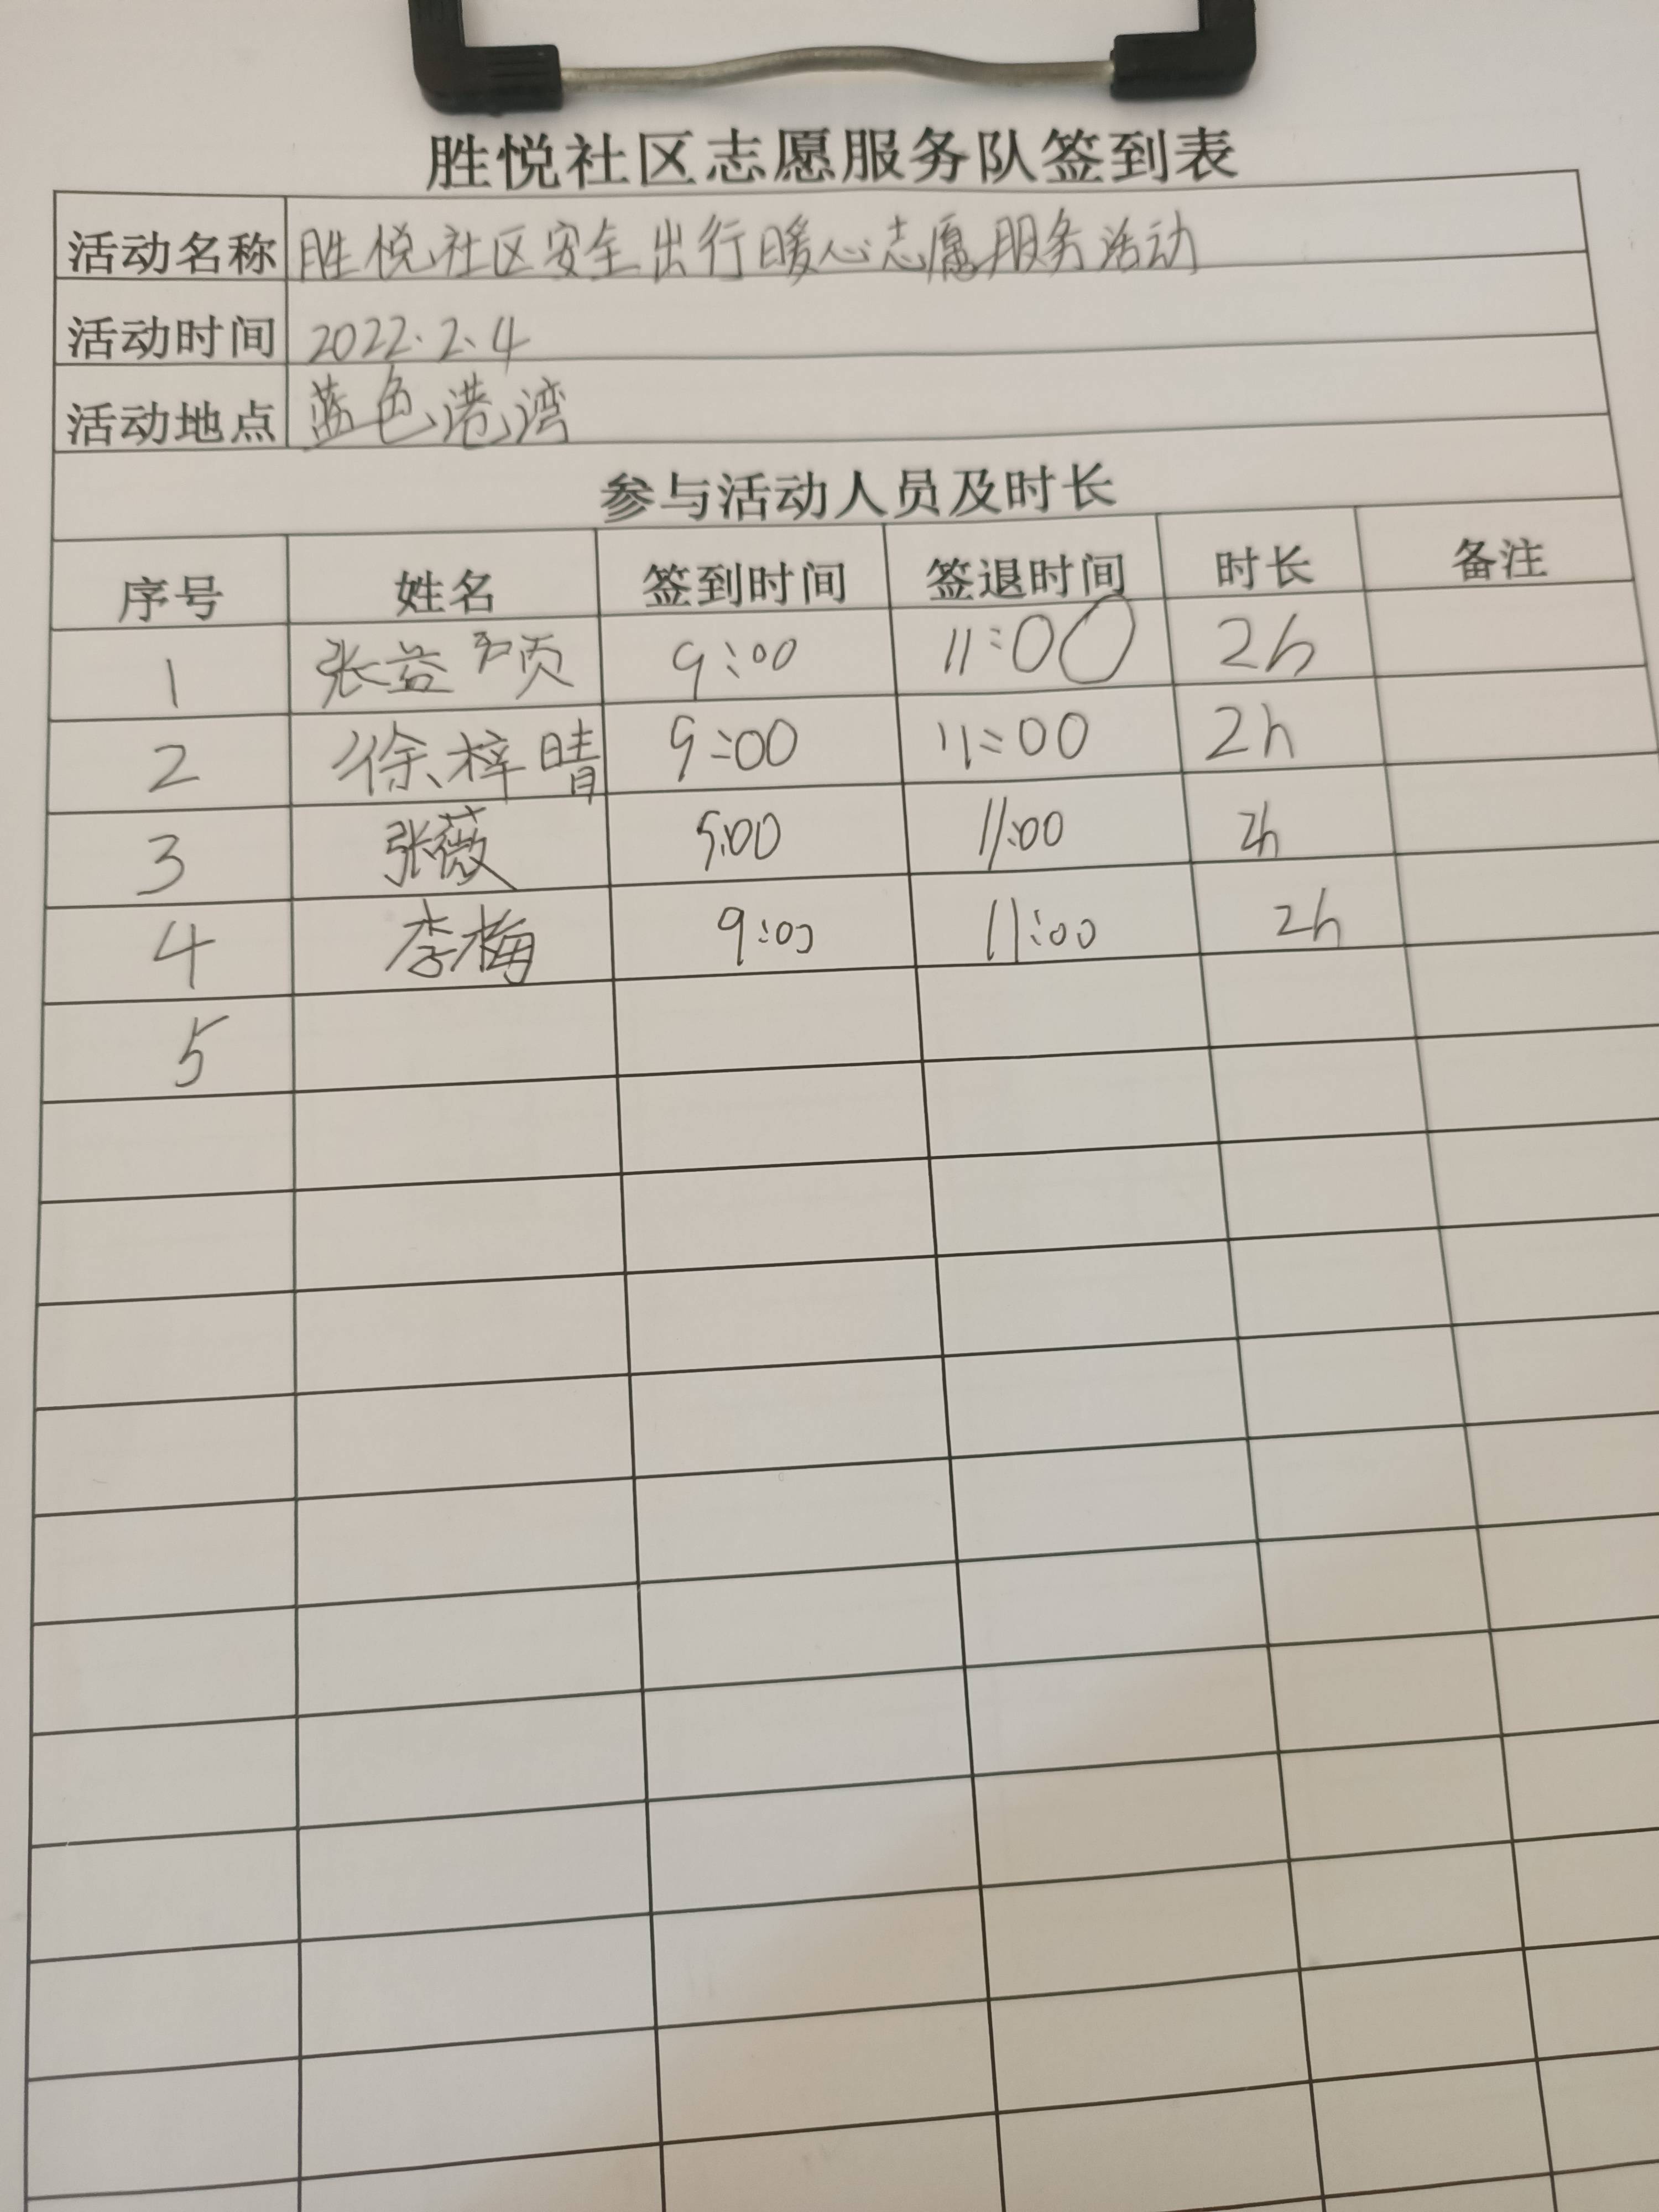 胜悦社区志愿服务队签到表
活动名称 胜悦社区安全出行暖心志愿服务活动
活动时间 2022.2.4
活动地点 蓝色港湾
参与活动人员及时长
序号 姓名 签到时间 签退时间 时长 备注
1 张益硕 9:00 11:00 2h
2 徐梓晴 9:00 11:00 2h
3 张薇 9:00 11:00 2h
4 李梅 9:00 11:00 2h
5